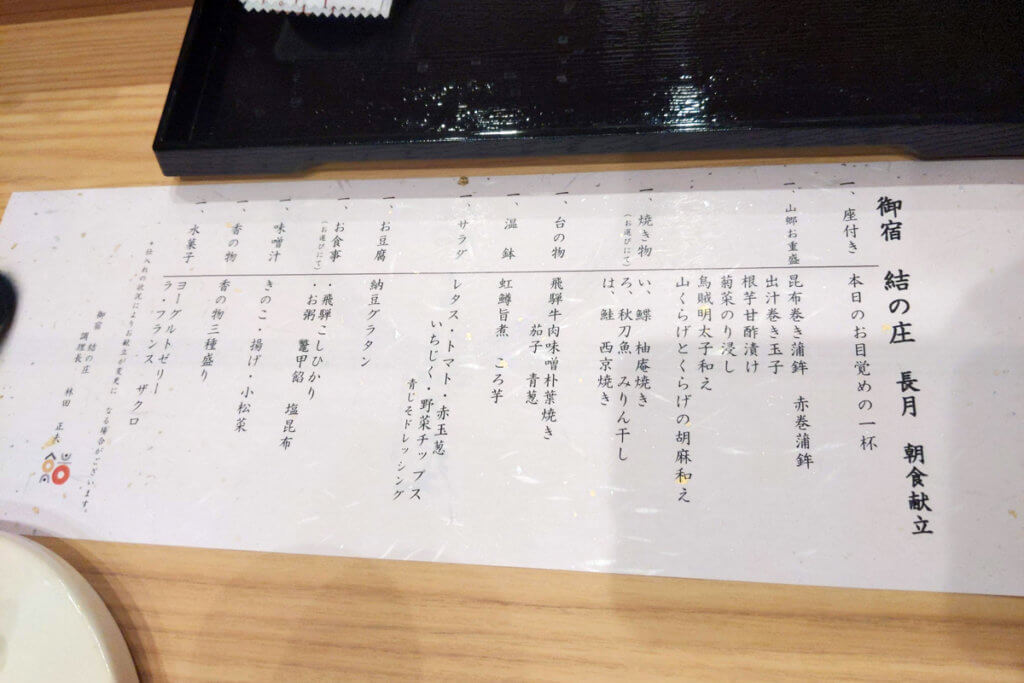 御宿 結の庄 長月 朝食献立
一、座付き 本日のお目覚めの一杯
一、山郷お重盛 昆布巻き蒲鉾 赤巻蒲鉾
出汁巻き玉子
根芋甘酢漬け
菊菜のり浸し
烏賊明太子和え
山くらげとくらげの胡麻和え
一、焼き物 い、鰈 柚庵焼き
(お選びにて) ろ、秋刀魚 みりん干し
は、鮭 西京焼き
一、台の物 飛騨牛肉味噌朴葉焼き
茄子 青葱
一、温鉢 虹鱒旨煮 ころ芋
一、サラダ レタス・トマト・赤玉葱
いちじく・野菜チップス
青じそドレッシング
一、お豆腐 納豆グラタン
一、お食事 ・飛騨こしひかり
(お選びにて) ・お粥 鼈甲餡 塩昆布
一、味噌汁 きのこ・揚げ・小松菜
一、香の物 香の物三種盛り
一、水菓子 ヨーグルトゼリー
ラ・フランス ザクロ
*仕入れの状況によりお献立が変更に なる場合がございます。
御宿 結の庄
調理長 林田 正夫